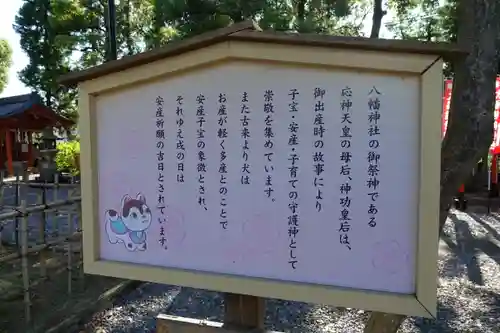 八幡神社の御祭神である
応神天皇の母后、神功皇后は、
御出産時の故事により
子宝・安産・子育ての守護神として
崇敬を集めています。
また古来より犬は
お産が軽く多産とのことで
安産子宝の象徴とされ、
それゆえ戌の日は
安産祈願の吉日とされています。